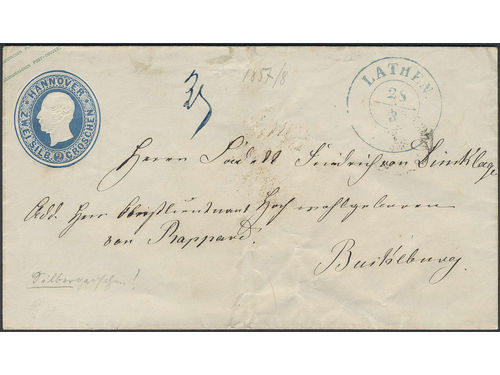 HANNOVER
ZWEI SILB. GROSCHEN
2
1857/8
LATHEN
28
3
Herrn Friedrich von
Add. Herr Oberstlieutenant Hochwohlgeboren
von Rappard.
Bückeburg.
Silbergroschen!